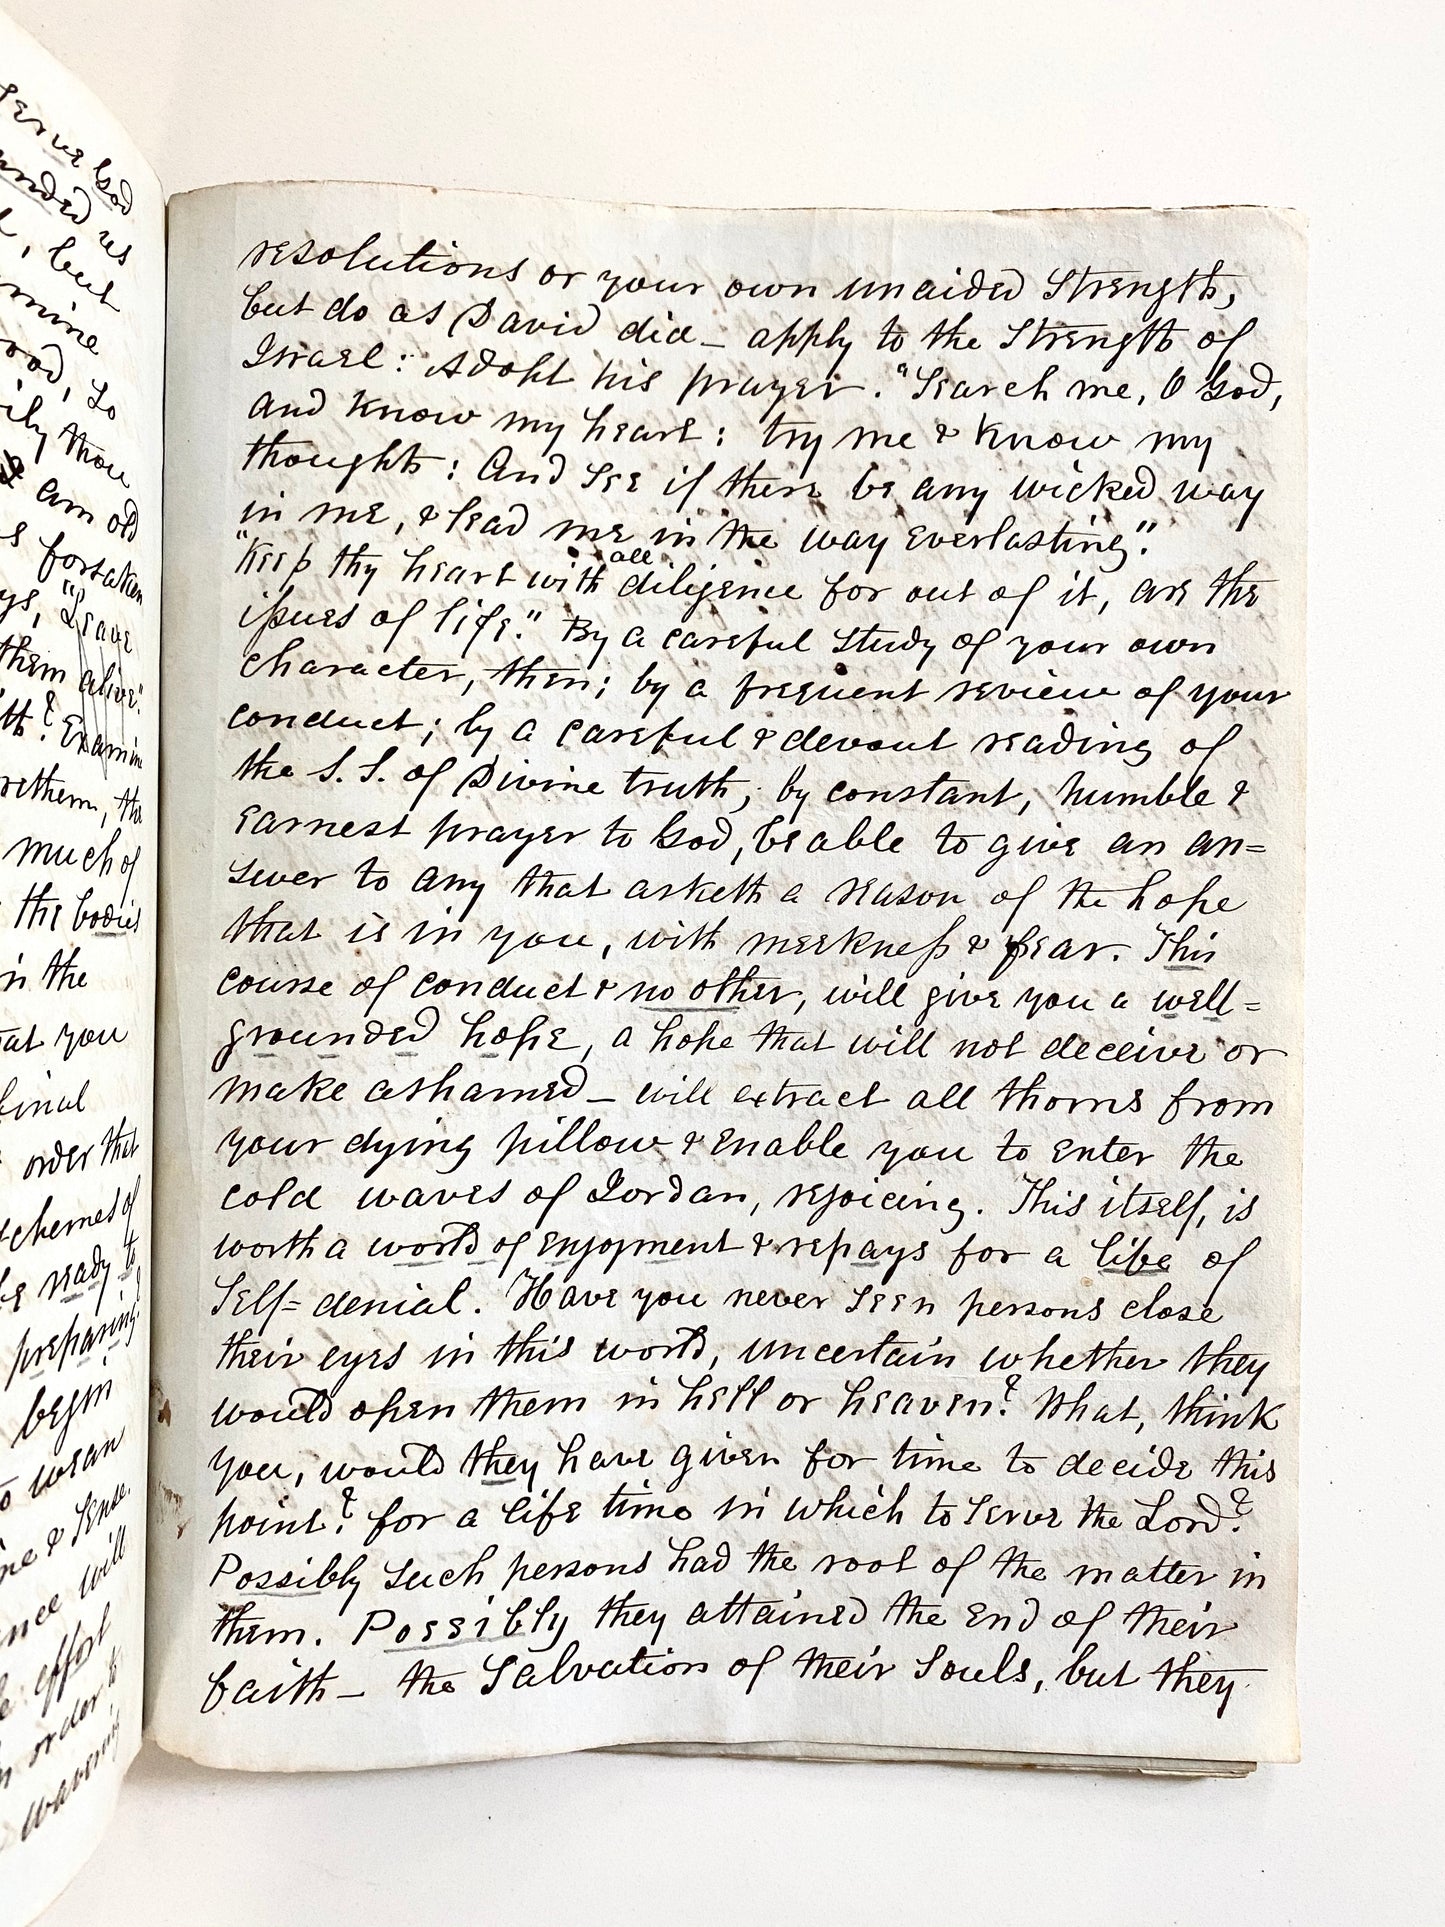 serve God
unded us
, but
mine
ood, so
ily thou
am old
forsaken
ys, "Leave
them alive."
th? Examine
rethern, the
much of
the bodies
in the
at you
final
order that
schemes of
be ready to
preparing
begin
to wean
ne & sense.
ance will
effort
in order to
wavering
resolutions or your own unaided strength,
but do as David did – apply to the Strength of
Israel: Adopt his prayer. "Search me, O God,
and know my heart: try me & know my
thoughts: And see if there be any wicked way
in me, & lead me in the way everlasting."
"Keep thy heart with all diligence for out of it, are the
issues of life." By a careful study of your own
character, then; by a frequent review of your
conduct; by a careful & devout reading of
the S.S. of Divine truth; by constant, humble &
earnest prayer to God, be able to give an an=
swer to any that asketh a reason of the hope
that is in you, with meekness & fear. This
course of conduct & no other, will give you a well=
grounded hope, a hope that will not deceive or
make ashamed – will extract all thorns from
your dying pillow & enable you to enter the
cold waves of Jordan, rejoicing. This itself, is
worth a world of enjoyment & repays for a life of
self=denial. Have you never seen persons close
their eyes in this world, uncertain whether they
would open them in hell or heaven? What, think
you, would they have given for time to decide this
point? for a life time in which to serve the Lord?
Possibly such persons had the root of the matter in
them. Possibly they attained the end of their
faith – the Salvation of their souls, but they